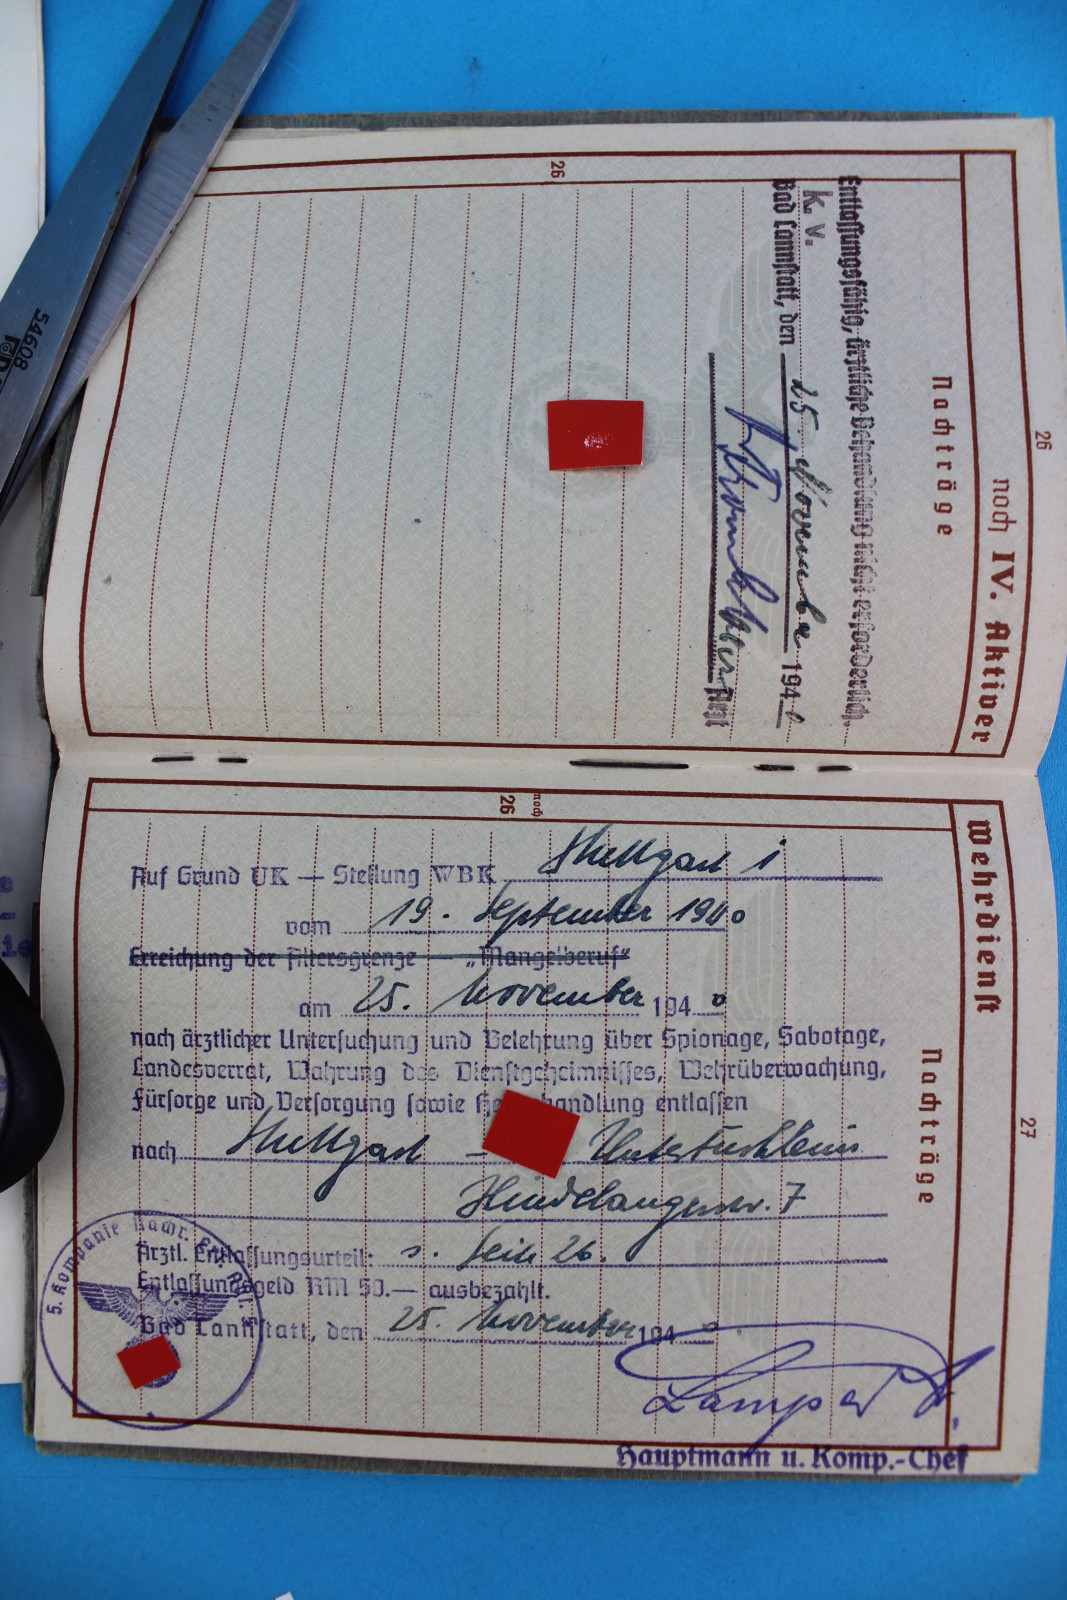 54608
26
noch IV. Aktiver
Nachträge
26
Entlassungsfähig, ärztliche Behandlung nicht erforderlich.
k. v.
Bad Cannstatt, den 25. November 1940
Arzt
Wehrdienst
27
Nachträge
noch
26
Auf Grund UK — Stellung WBK Stuttgart i
vom 19. September 1940
Erreichung der Altersgrenze — „Mangelberuf“
am 25. November 1940
nach ärztlicher Untersuchung und Belehrung über Spionage, Sabotage,
Landesverrat, Wahrung des Dienstgeheimnisses, Wehrüberwachung,
Fürsorge und Versorgung sowie handlung entlassen
nach Stuttgart - Untertürkheim
Hindelangerstr. 7
Ärztl. Entlassungsurteil: s. Seite 26.
Entlassungsgeld RM 50.— ausbezahlt.
Bad Cannstatt, den 25. November 1940
5. Kompanie Nachr.
Hauptmann u. Komp.-Chef